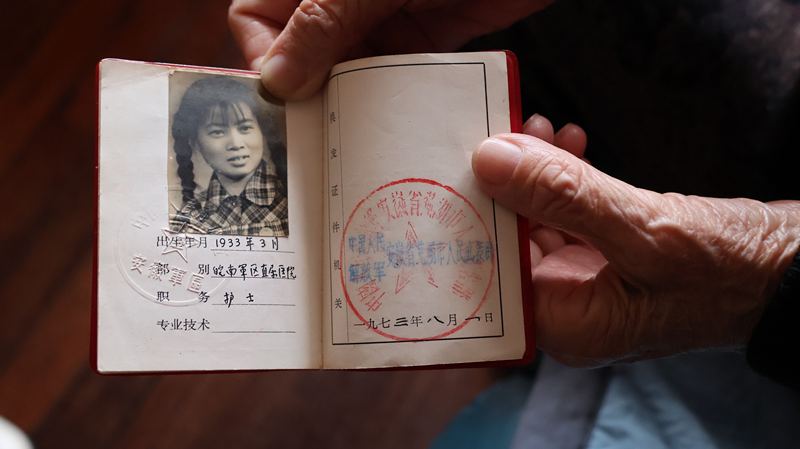 出生年月 1933年3月
部 别 皖南军区直属医院
职 务 护士
专业技术
安徽军区
填发证件机关
中国人民解放军
安徽省芜湖市人民武装部
一九七三年八月一日